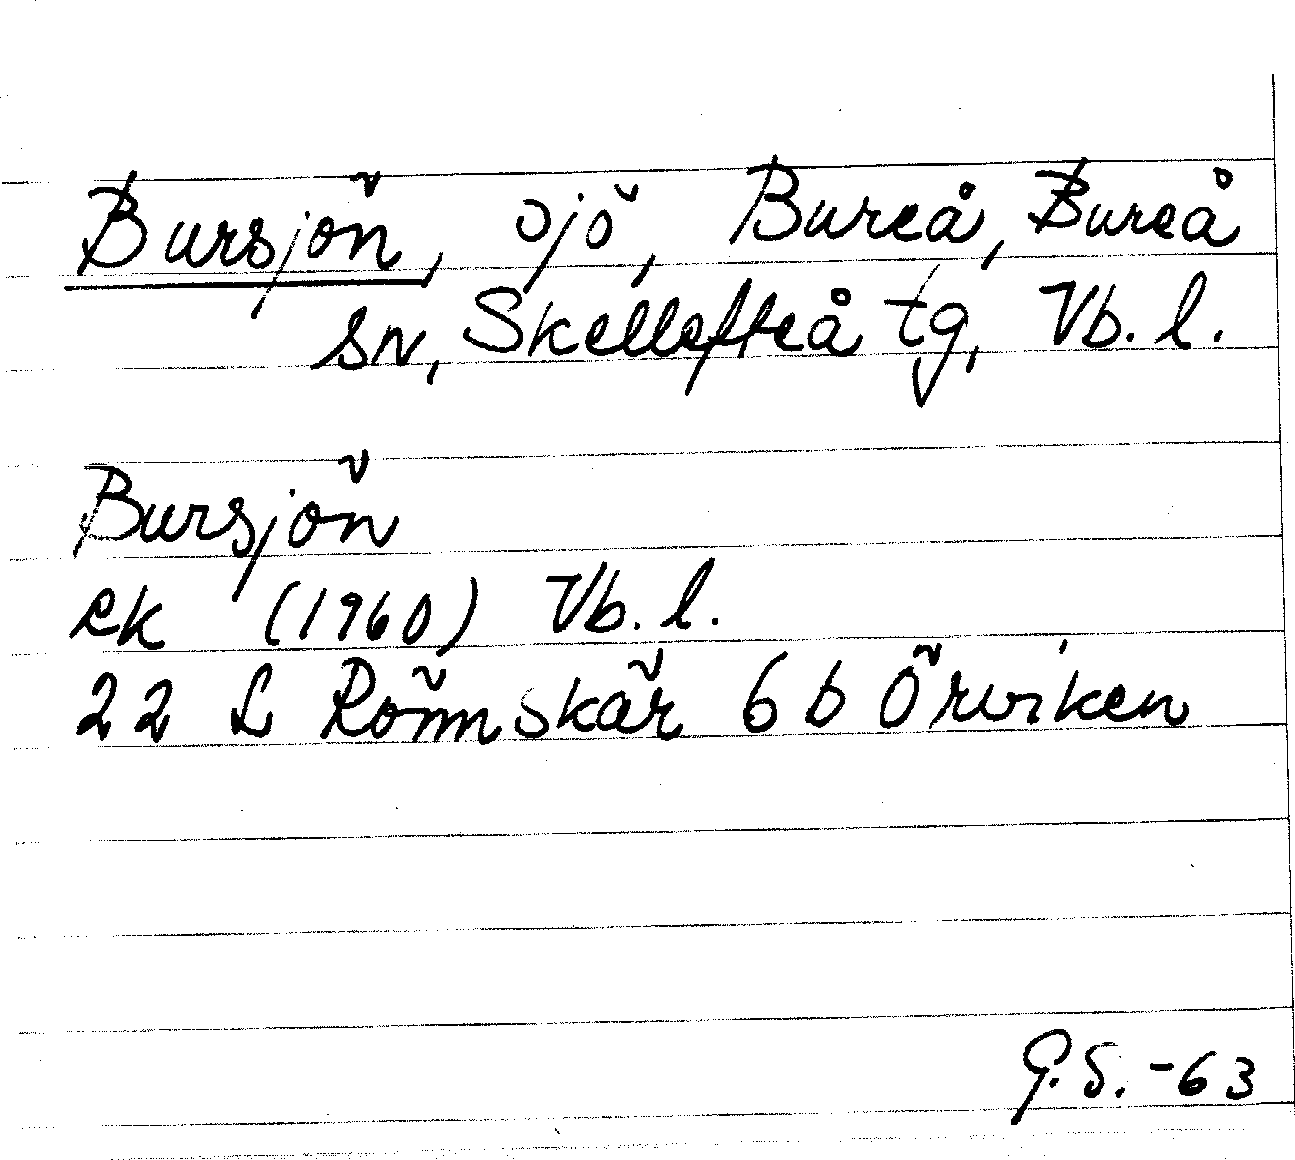 Bursjön, sjö, Bureå, Bureå
sn, Skellefteå tg, Vb. l.
Bursjön
ek (1960) Vb. l.
22 L Rönnskär 6 b Örviken
G.S. -63